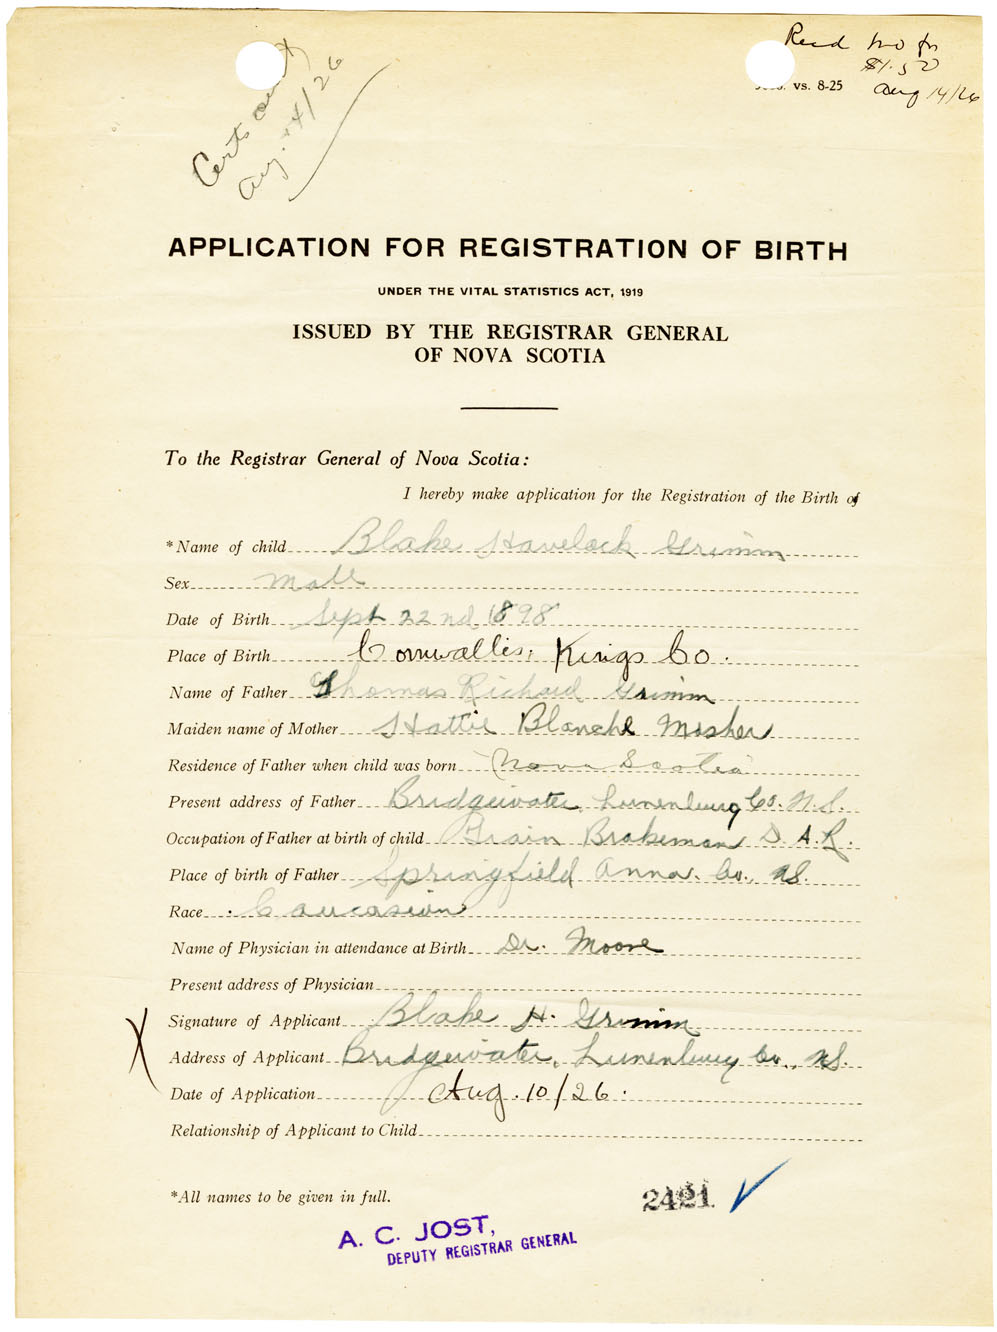 Certs out
Aug. 14/26
Recd M.O for
$1.50
Aug 14/26
vs. 8-25
APPLICATION FOR REGISTRATION OF BIRTH
UNDER THE VITAL STATISTICS ACT, 1919
ISSUED BY THE REGISTRAR GENERAL
OF NOVA SCOTIA
To the Registrar General of Nova Scotia:
I hereby make application for the Registration of the Birth of
*Name of child Blake Havelock Grimm
Sex Male
Date of Birth Sept 22nd 1898
Place of Birth Cornwallis, Kings Co.
Name of Father Thomas Richard Grimm
Maiden name of Mother Hattie Blanche Mosher
Residence of Father when child was born Nova Scotia
Present address of Father Bridgewater, Lunenburg Co. N.S.
Occupation of Father at birth of child Train Brakeman D.A.R.
Place of birth of Father Springfield Anna. Co., N.S.
Race Caucasion
Name of Physician in attendance at Birth Dr. Moore
Present address of Physician
Signature of Applicant Blake H. Grimm
X
Address of Applicant Bridgewater, Lunenburg Co., N.S.
Date of Application Aug. 10/26.
Relationship of Applicant to Child
*All names to be given in full.
2421
A. C. JOST,
DEPUTY REGISTRAR GENERAL